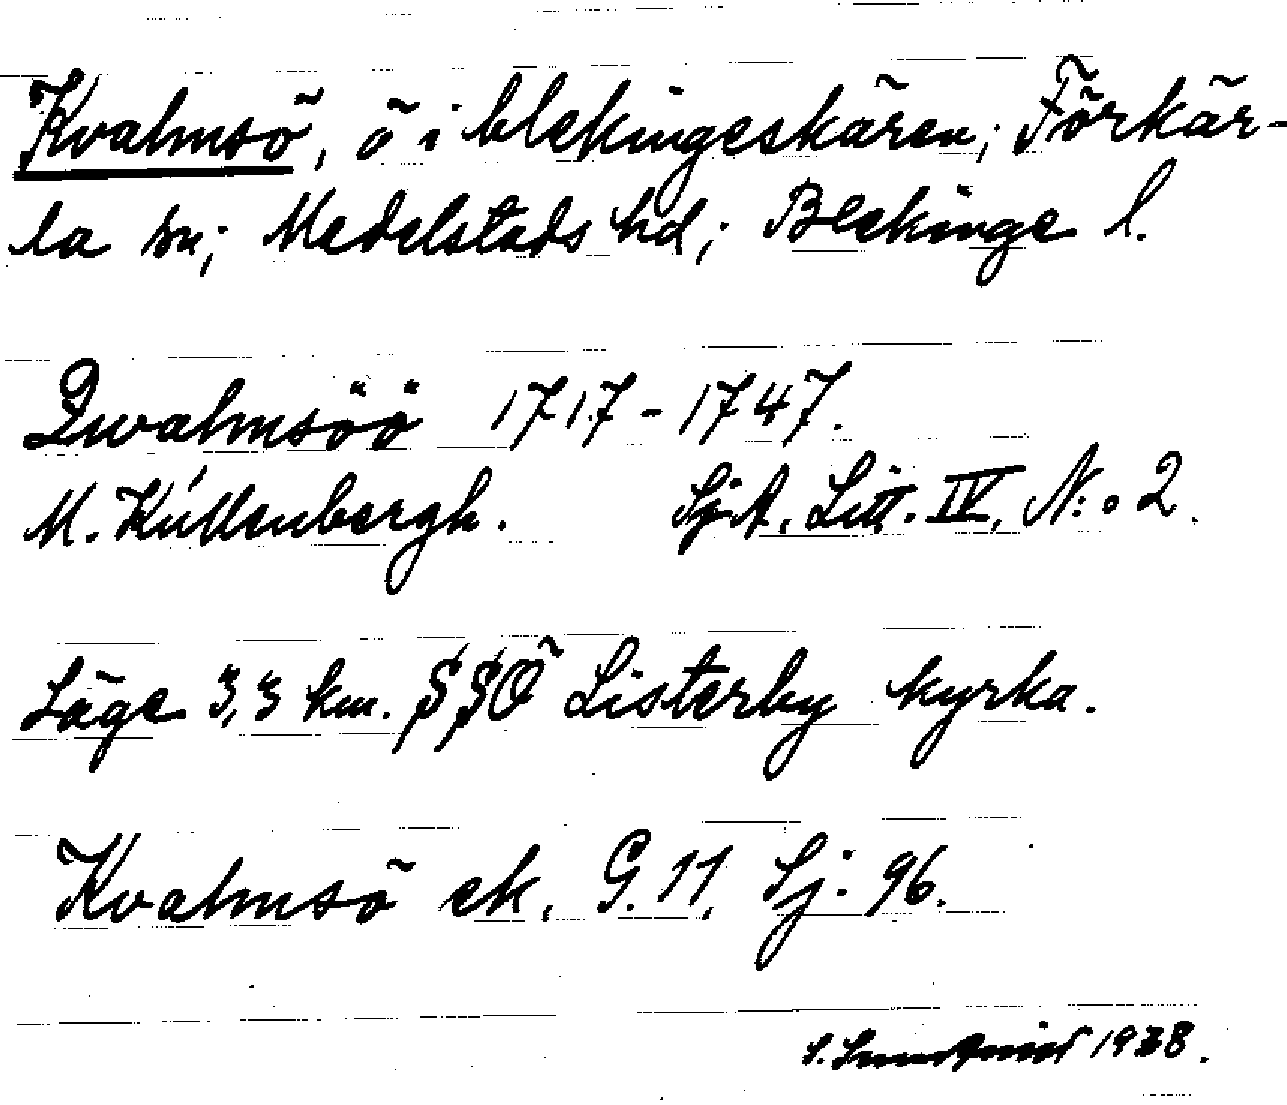 Kvalmsö, ö i blekingeskären; Förkär-
la sn; Medelstads hd; Blekinge l.
Qwalmsöö 1717-1747.
M. Kúllenbergh. SjA, Litt. IV, N:o 2.
Läge 3,3 km. SSÖ Listerby kyrka.
Kvalmsö ek, G. 11, Sj: 96.
S. 1938.